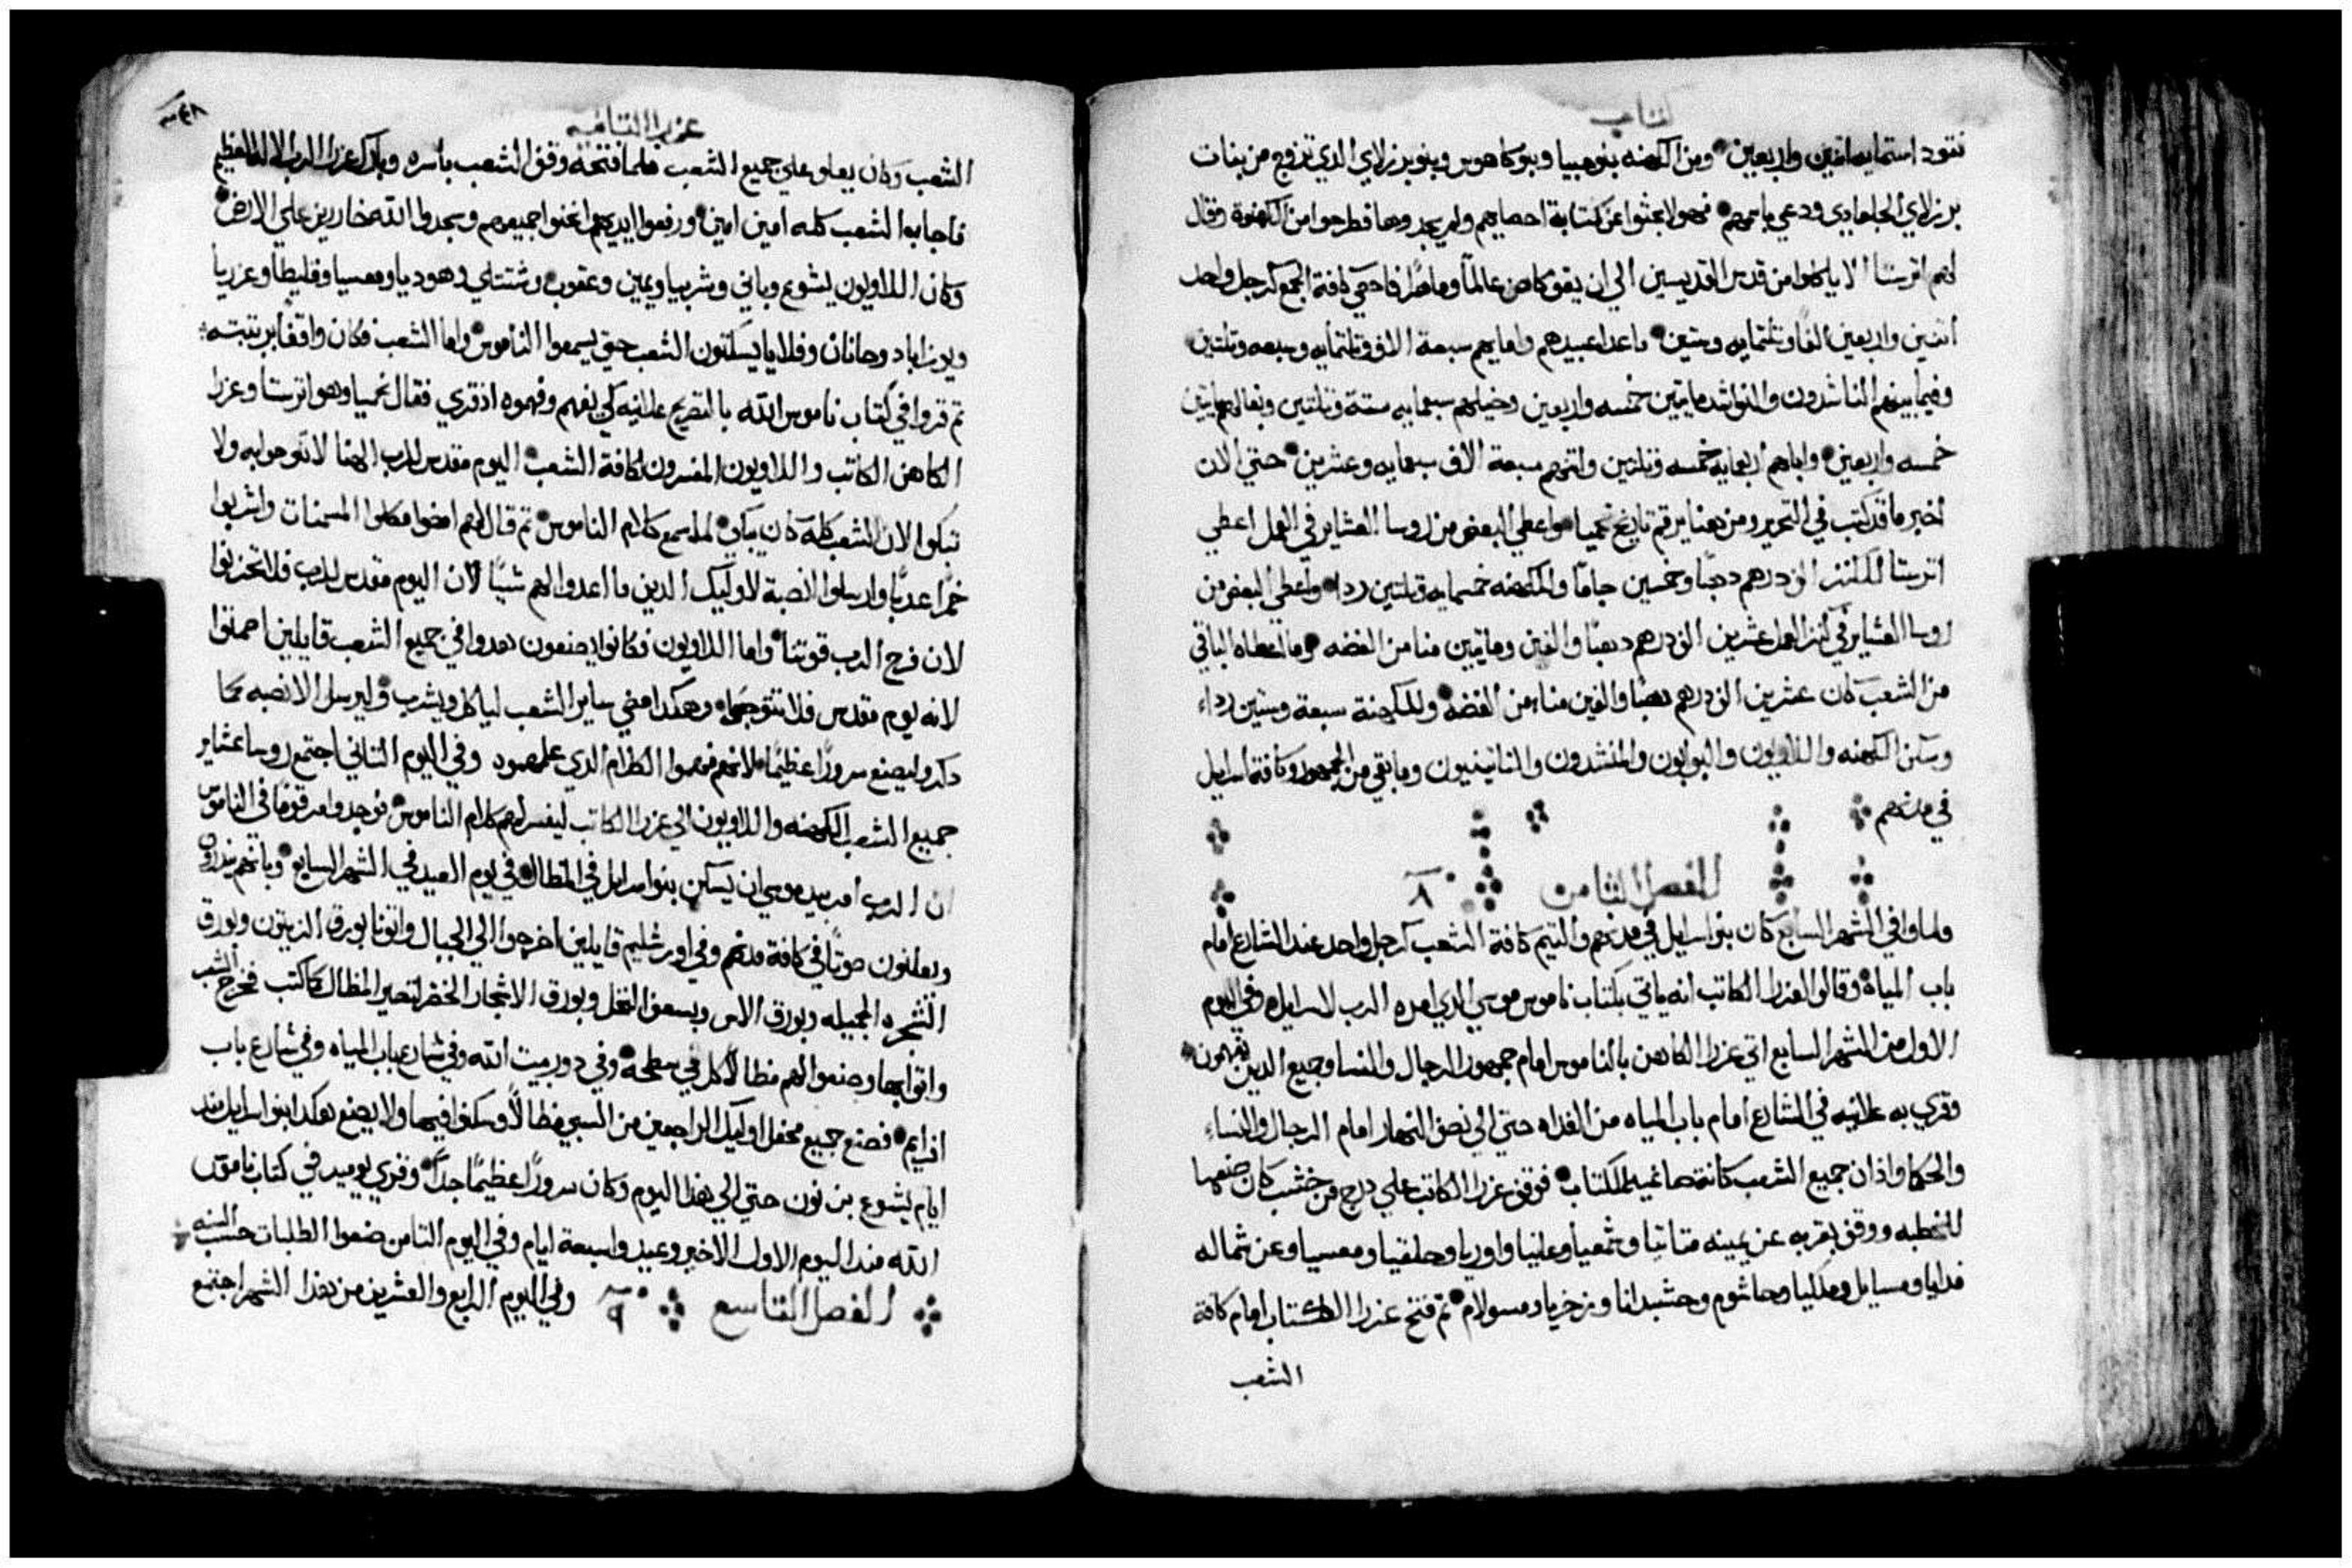 كتاب
نقود استمايه اتنين واربعين ومن الكهنه بنو هبيا وبنو كاهوس وبنو برزلاي الدي تزوج من بنات
برزلاي الجلعادي ودعي باسمهم فهولا بحثوا عن كتابة احصايهم ولم يجدوها فطرحوا من الكهنوة وقال
لهم اترستا الا ياكلوا من قدس القديسين الي ان يقوم كاهن عالمًا وماهرًا فاحصي كافة الجمع كرجل واحد
اتنين واربعين الفًا وتلتمايه وستين ماعدا عبيدهم وامايهم سبعة الاف وتلتمايه وسبعه وتلتين
وفيما بينهم الناشدون والنواشد مايتين خمسه واربعين وخيلهم سبعمايه ستة وتلتين وبغالهم مايتين
خمسه واربعين واباهم اربعمايه خمسه وتلتين واتنهم سبعة الاف سبعمايه وعشرين حتي الان
اخبر ما قد كتب في التحرير ومن هنا يرقم تاريخ نحميا واعطي البعض من روسا العشاير في العمل اعطي
اترستا للكنز الف درهم دهبًا وخمسين جامًا وللكهنه خمسمايه وتلتين ردا واعطي البعض من
روسا العشاير في كنز العمل عشرين الف درهم دهبًا والفين ومايتين منا من الفضه وما اعطاه الباقي
من الشعب كان عشرين الف درهم دهبًا والفين مناء من الفضه وللكهنة سبعة وستين رداء
وسكن الكهنه واللاويون والبوابون والمنشدون والناتينيون وما بقي من الجمهور وكافة اسرايل
في مدنهم
الفصل الثامن ٨
ولما وافي الشهر السابع كان بنو اسرايل في مدنهم والتيم كافة الشعب كرجل واحد عند الشارع امام
باب المياه وقالوا لعزرا الكاتب انه ياتي بكتاب ناموس موسي الدي امره الرب لاسرايل وفي اليوم
الاول من الشهر السابع اتي عزرا الكاهن بالناموس امام جمهور الرجال والنسا وجميع الدين يفهمون
وقري به علانيه في الشارع امام باب المياه من الغداه حتي الي نصف النهار امام الرجال والنساء
والحكما واذان جميع الشعب كانت صاغيه للكتاب فوقف عزرا الكاتب علي درج من خشب كان صنعها
للخطبه ووقف بقربه عن يمينه متاتيا وشمعيا وعلنيا واوريا وحلقيا ومعسيا وعن شماله
فدايا ومسايل وملكيا وحاشوم وحشبدانا وزخريا ومسولام تم فتح عزرا الكتاب امام كافة
الشعب
عزرا التانيه
الشعب وكان يعلو علي جميع الشعب فلما فتحه وقف الشعب باسره وبارك عزرا الرب الاله العظيم
فاجابوا الشعب كله امين امين ورفعوا ايديهم انحنوا جميعهم وسجدوا لله خاررين علي الارض
وكان اللاويون يشوع وباني وشربيا ويمين وعقوب وشبتتاي وهوديا ومعسيا وفليطا وعزريا
ويوزاباد وحانان وفلايا يسكتون الشعب حتي يسمعوا الناموس واما الشعب فكان واقفًا برتبته
تم قروا في كتاب ناموس الله بالتصريح علانيه لكي يفهم وفهموه اذ قري فقال نحميا وهو اترستا وعزرا
الكاهن الكاتب واللاويون المفسرون لكافة الشعب اليوم مقدس للرب الهنا لا تتوحوا به ولا
تبكوا لان الشعب كله كان يبكي لما سمع كلام الناموس تم قال لهم امضوا فكلوا المسمنات واشربوا
خمرًا عدبًا وارسلوا انصبة لاوليك الدين ما اعدوا لهم شيًا لان اليوم مقدس للرب فلا تحزنوا
لان فرح الرب قوتنا واما اللاويون فكانوا يصنعون هدوا في جميع الشعب قايلين اصمتوا
لانه يوم مقدس فلا تتوجعوا وهكدا مضي ساير الشعب لياكل ويشرب وليرسل الانصبه مما
دكر وليصنع سرورًا عظيمًا لانهم فهموا الكلام الدي علمهم وفي اليوم التاني اجتمع روسا عشاير
جميع الشعب الكهنه واللاويون الي عزرا الكاتب ليفسر لهم كلام الناموس فوجدوا مرقومًا في الناموس
ان الرب امر بيد موسي ان يسكن بنو اسرايل في المظال في يوم العيد في الشهر السابع وبانهم ينذرون
ويعلنون صوتًا في كافة مدنهم وفي اورشليم قايلين اخرجوا الي الجبال واتونا بورق الزيتون وبورق
الشجره الجميله وبورق الاس وبسعف النخل وبورق الاشجار الخضر لتصير المظال كما كتب فخرج الشعب
واتوا بها وصنعوا لهم مظالًا كل في سطحه وفي دور بيت الله وفي شارع باب المياه وفي شارع باب
افرايم فصنع جميع محفل اوليك الراجعين من السبي مظالًا وسكنوا فيها ولا يصنع هكدا بنو اسرايل مند
ايام يشوع بن نون حتي الي هدا اليوم وكان سرورًا عظيمًا جدًا وقري يوميد في كتاب ناموس
الله مند اليوم الاول الي الاخير وعيدوا سبعة ايام وفي اليوم التامن صنعوا الطلبات حسب السنه
الفصل التاسع ٩ وفي اليوم الرابع والعشرين من هدا الشهر اجتمع